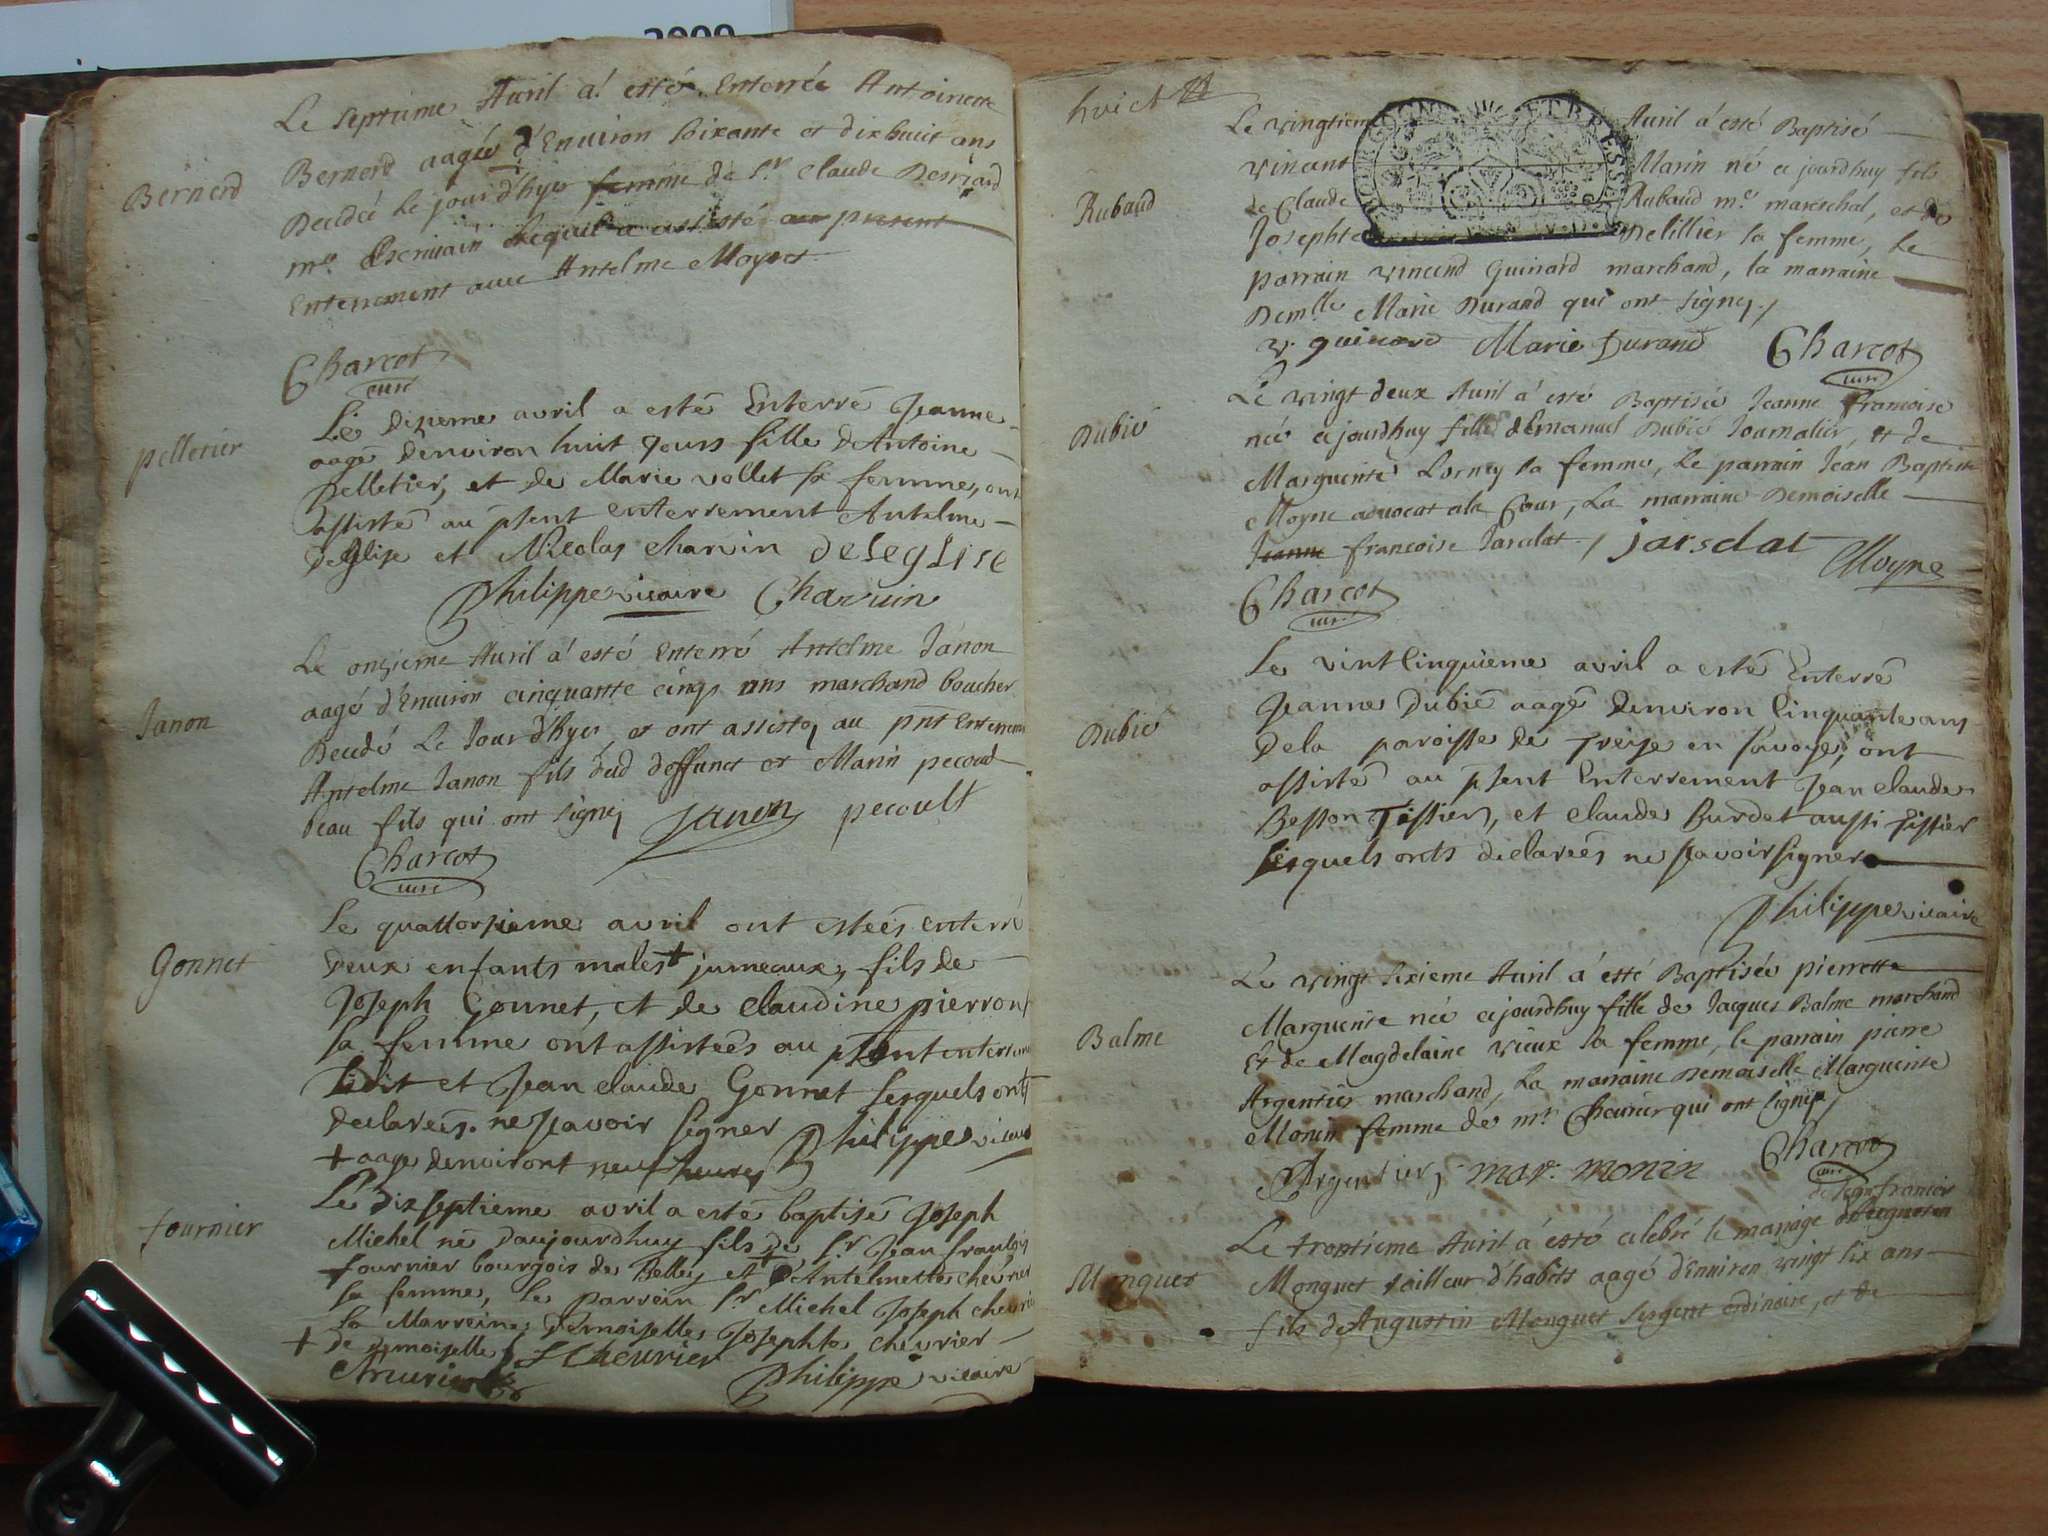 Le septieme Auril a esté Enterrée Antoinette
Bernerd
Bernerd aagée d'Enuiron soixante et dix huict ans
Decedée le jour d'hyer femme de Sr Claude Berniard
me Escriuain lequel a assisté au present
Enterrement auec Antelme Moyret
Charcot
curé
pelletier
Le dizieme avril a esté Enterré Jeanne
aagé denviron huit jours fille dAntoine
pelletier, et de Marie vollet sa femme, ont
assisté au pſent enterrement Antelme
deglise et Nicolas charvin deleglise
Philippe vicaire Charuin
Janon
Le onzieme Auril a esté Enterré Antelme Janon
aagé d'Enuiron cinquante cinqs ans marchand boucher
Decedé le Jour d'hyer, et ont assistez au pnt Enterrement
Antelme Janon fils dud deffunct et Marin pecoud
beau fils qui ont signez Janon pecoult
Charcot
curé
Gonnet
Le quattorzieme avril ont esteés enterré
deux enfants males + jumeaux, fils de
Joseph Gonnet, et de claudine pierront
sa femme ont assisteés au pſent enterrement
ledit et Jean claude Gonnet lesquels onts
declareés ne sçavoir signer Philippe vicaire
+ aage denviront neuf heures
fournier
Le dix septieme avril a esté baptisé Joseph
Michel né daujourdhuy fils de Sr Jean francois
fournier bourgois de Belley et + d'Antelmette chevrier
sa femme, le parrein Sr Michel Joseph chevrier
la Marreine demoiselle Josephte chevrier
+ de demoiselle J Cheurier
Philippe vicaire
huict
Rubaud
Le vingtieme Auril a esté Baptisé
vincent Marin né cejourdhuy fils
de Claude Rubaud me mareschal, et de
Josephte Delillier sa femme, le
parrain vincend Guinard marchand, la marraine
Demlle Marie Durand qui ont signez
v. guinard Marie Durand Charcot
curé
Dubié
Le vingt deux Auril a esté Baptisée Jeanne francoise
née cejourdhuy fille d'Emanuel Dubié Journalier, et de
Marguerite Lorney sa femme, le parrain Jean Baptiste
Moyne aduocat ala Cour, La marraine Demoiselle
Jeanne francoise Jarselat jarsclat Moyne
Charcot
curé
Dubié
Le vint cinquieme avril a esté Enterré
Jeanne Dubié aagé denviron cinquante ans
dela paroisse de treize en savoye, ont
assisté au pſent Enterrement Jean claude
Besson Tissier, et claude Burdet aussi tissier
lesquels onts declareés ne sçavoir signer
Philippe vicaire
Balme
Le vingt sixieme Auril a esté Baptisée pierrette
Marguerite née cejourdhuy fille de Jacques Balme marchand
Et de Magdelaine vieux sa femme, le parrain pierre
Argentier marchand, La marraine Demoiselle Marguerite
Monin femme de mr Cheurier qui ont signez
Argentier mar. monin Charcot
curé
de Jean francois
Monguet
Le trentieme Auril a esté celebré le mariage
Monguet tailleur d'habits aagé d'Enuiron vingt six ans
fils de Augustin Monguet sergent ordinaire, et de